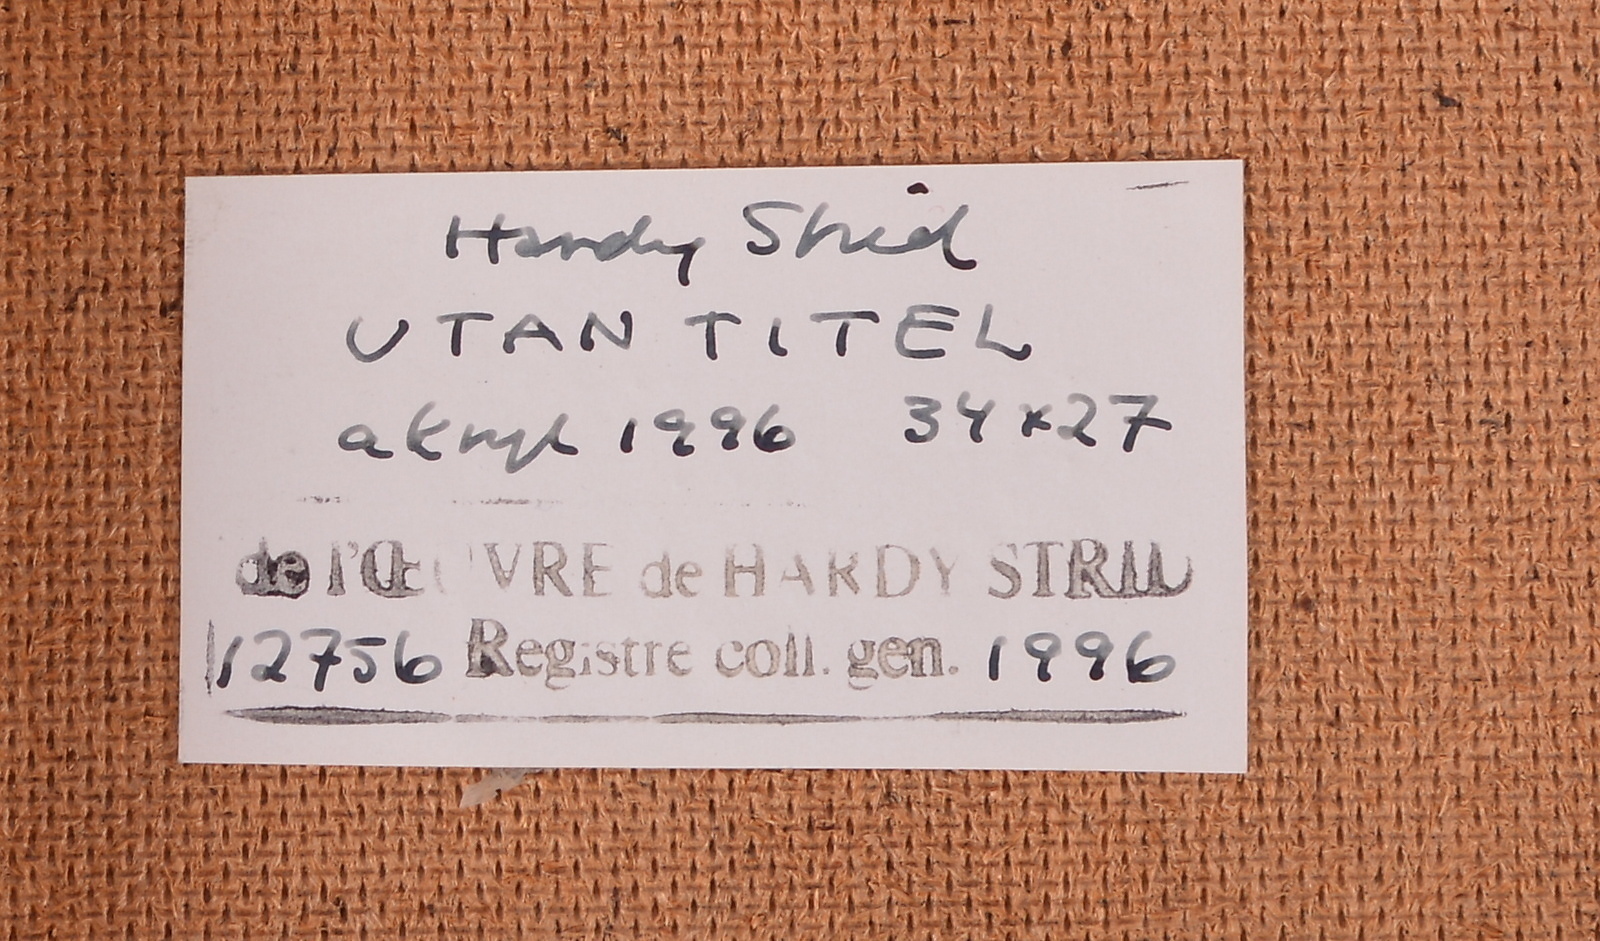 Hardy Strid
UTAN TITEL
akryl 1996 34x27
de l'ŒUVRE de HARDY STRID
12756 Registre coll. gen. 1996